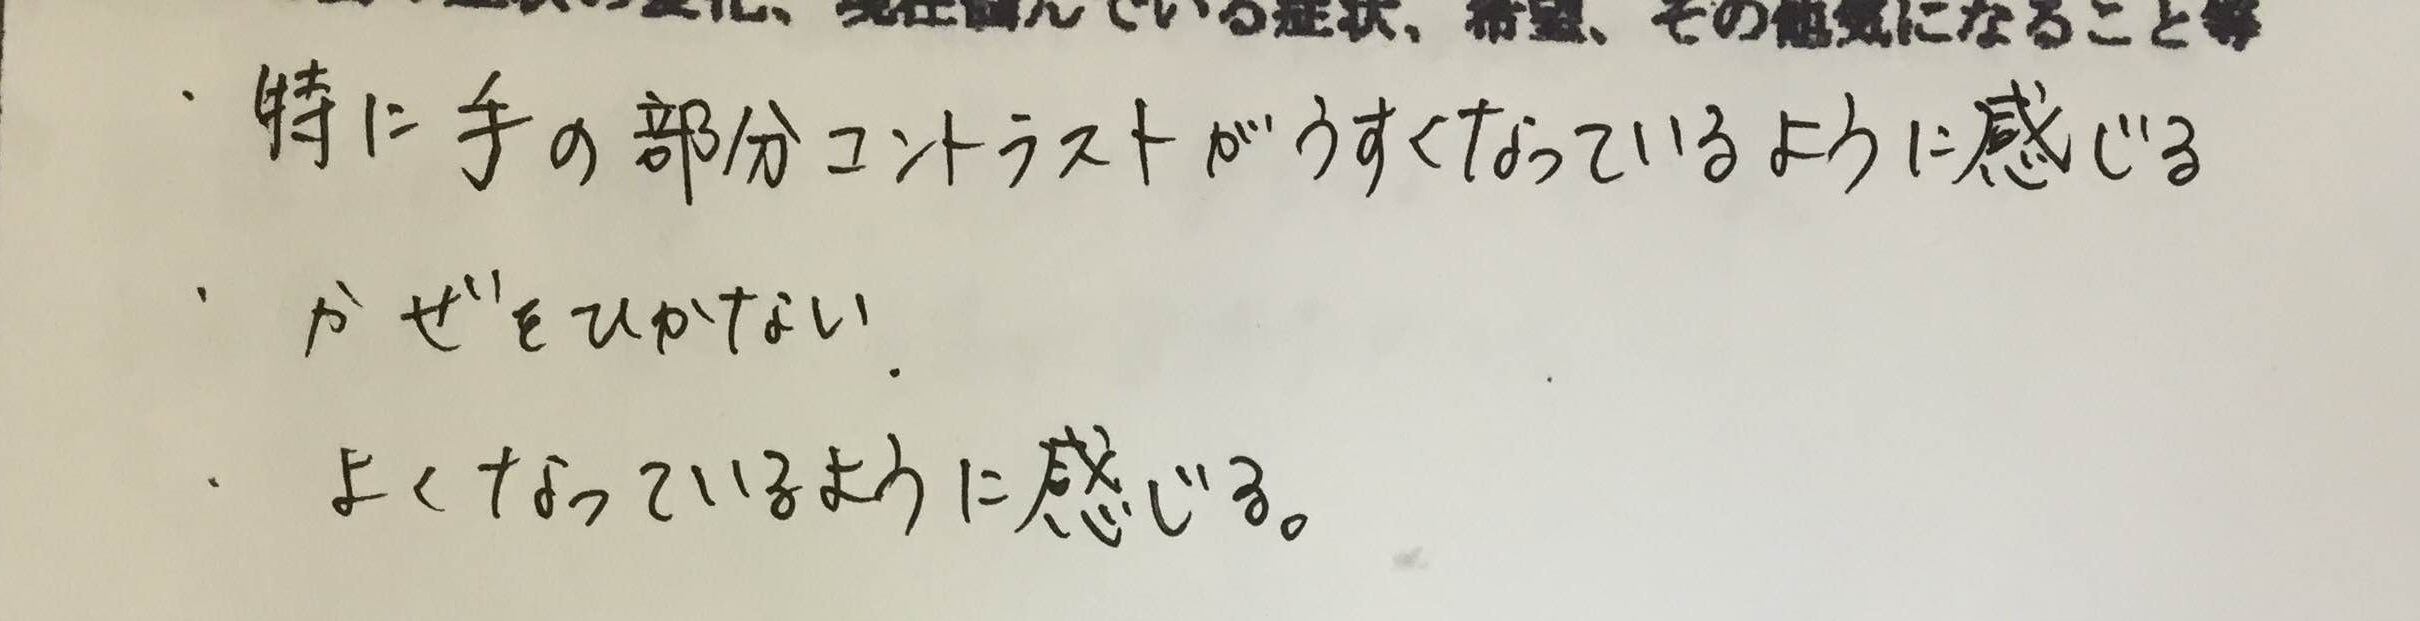 の変化、現在悩んでいる症状、希望、その他気になること等
・特に手の部分コントラストがうすくなっているように感じる
・かぜをひかない.
・よくなっているように感じる。